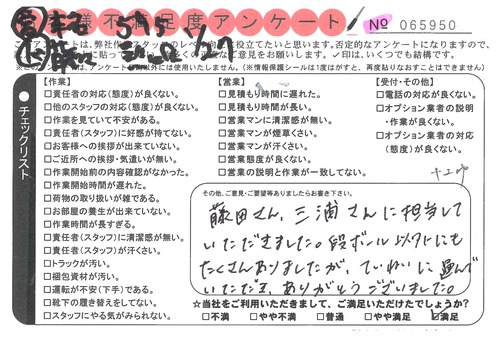 様不満足度アンケート No 065950
このアンケートは、弊社作業スタッフのレベル向上に役立てたいと思います。否定的なアンケートになりますので、
✓印は、いくつでも結構です。
【作業】
□責任者の対応(態度)が良くない。
□他のスタッフの対応(態度)が良くない。
□作業を見ていて不安がある。
□責任者(スタッフ)に好感が持てない。
□お客様への挨拶が出来ていない。
□ご近所への挨拶・気遣いが無い。
□作業開始前の内容確認がなかった。
□作業開始時間が遅れた。
□荷物の取り扱いが雑である。
□お部屋の養生が出来ていない。
□作業時間が長すぎる。
□責任者(スタッフ)に清潔感が無い。
□責任者(スタッフ)が汗くさい。
□トラックが汚い。
□梱包資材が汚い。
□運転が不安(下手)である。
□靴下の履き替えをしてない。
□スタッフにやる気がみられない。
チェックリスト
【営業】
□見積もり時間に遅れた。
□見積もり時間が長い。
□営業マンに清潔感が無い。
□営業マンが煙草くさい。
□営業マンが汗くさい。
□営業態度が良くない。
□営業の説明と作業が一致してない。
【受付・その他】
□電話の対応が良くない。
□オプション業者の説明
・作業が良くない。
□オプション業者の対応
(態度)が良くない。
その他、ご意見・ご要望等ありましたらお書き下さい。
藤田さん、三浦さんに担当して
いただきました。段ボール以外にも
たくさんありましたが、ていねいに運んで
いただき、ありがとうございました。
☆当社をご利用いただきまして、ご満足いただけたでしょうか?
□不満 □やや不満 □普通 □やや満足 ☑満足